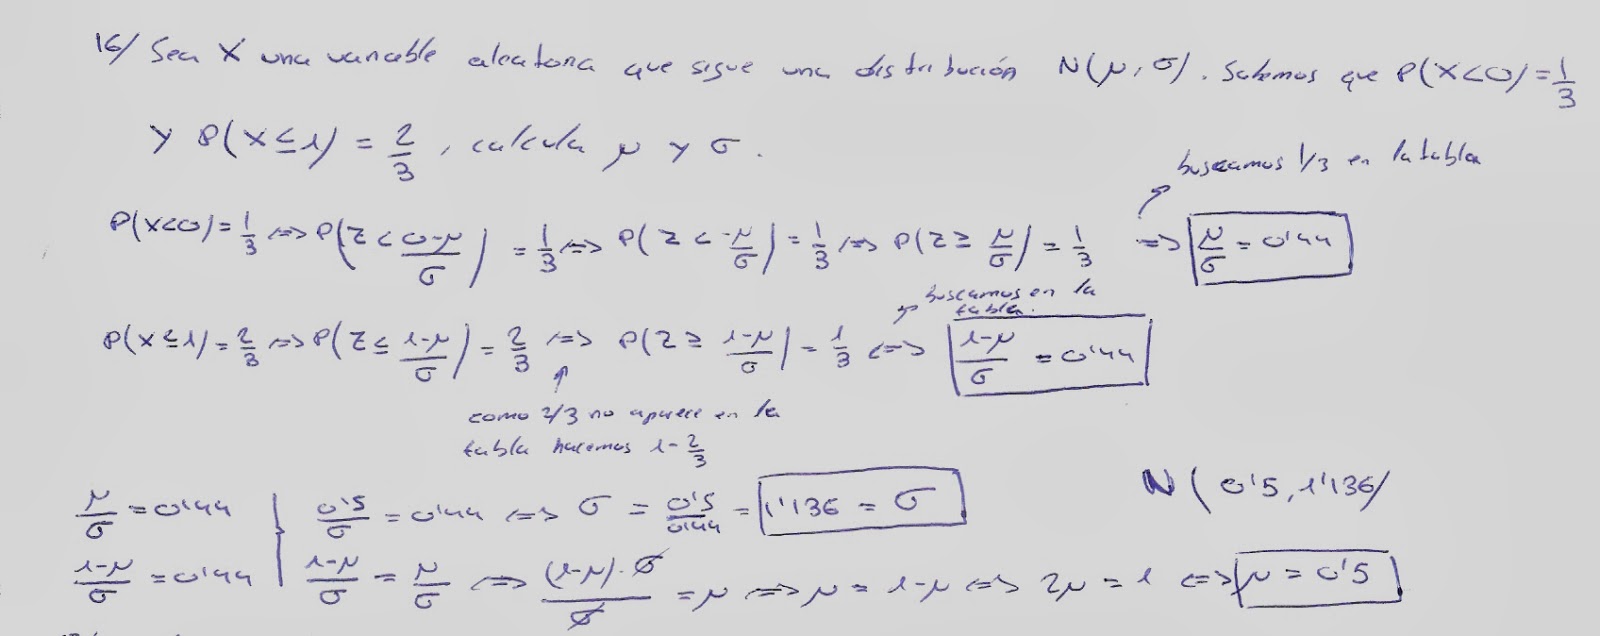 16/ Sea X una variable aleatoria que sigue una distribución N(μ, σ). Sabemos que P(X<0)=1/3
Y P(X≤1) = 2/3, calcula μ y σ.
buscamos 1/3 en la tabla
P(X<0)=1/3 ⇔ P(Z < 0-μ/σ) = 1/3 ⇔ P(Z < -μ/σ) = 1/3 ⇔ P(Z ≥ μ/σ) = 1/3 ⇒ μ/σ = 0'44
buscamos en la
tabla.
P(X≤1)=2/3 ⇔ P(Z ≤ 1-μ/σ) = 2/3 ⇔ P(Z ≥ 1-μ/σ) = 1/3 ⇔ 1-μ/σ = 0'44
como 2/3 no aparece en la
tabla hacemos 1-2/3
μ/σ = 0'44 } 0'5/σ = 0'44 ⇔ σ = 0'5/0'44 = 1'136 = σ N(0'5, 1'136)
1-μ/σ = 0'44 } 1-μ/σ = μ/σ ⇔ (1-μ)·σ/σ = μ ⇔ μ = 1-μ ⇔ 2μ = 1 ⇔ μ = 0'5